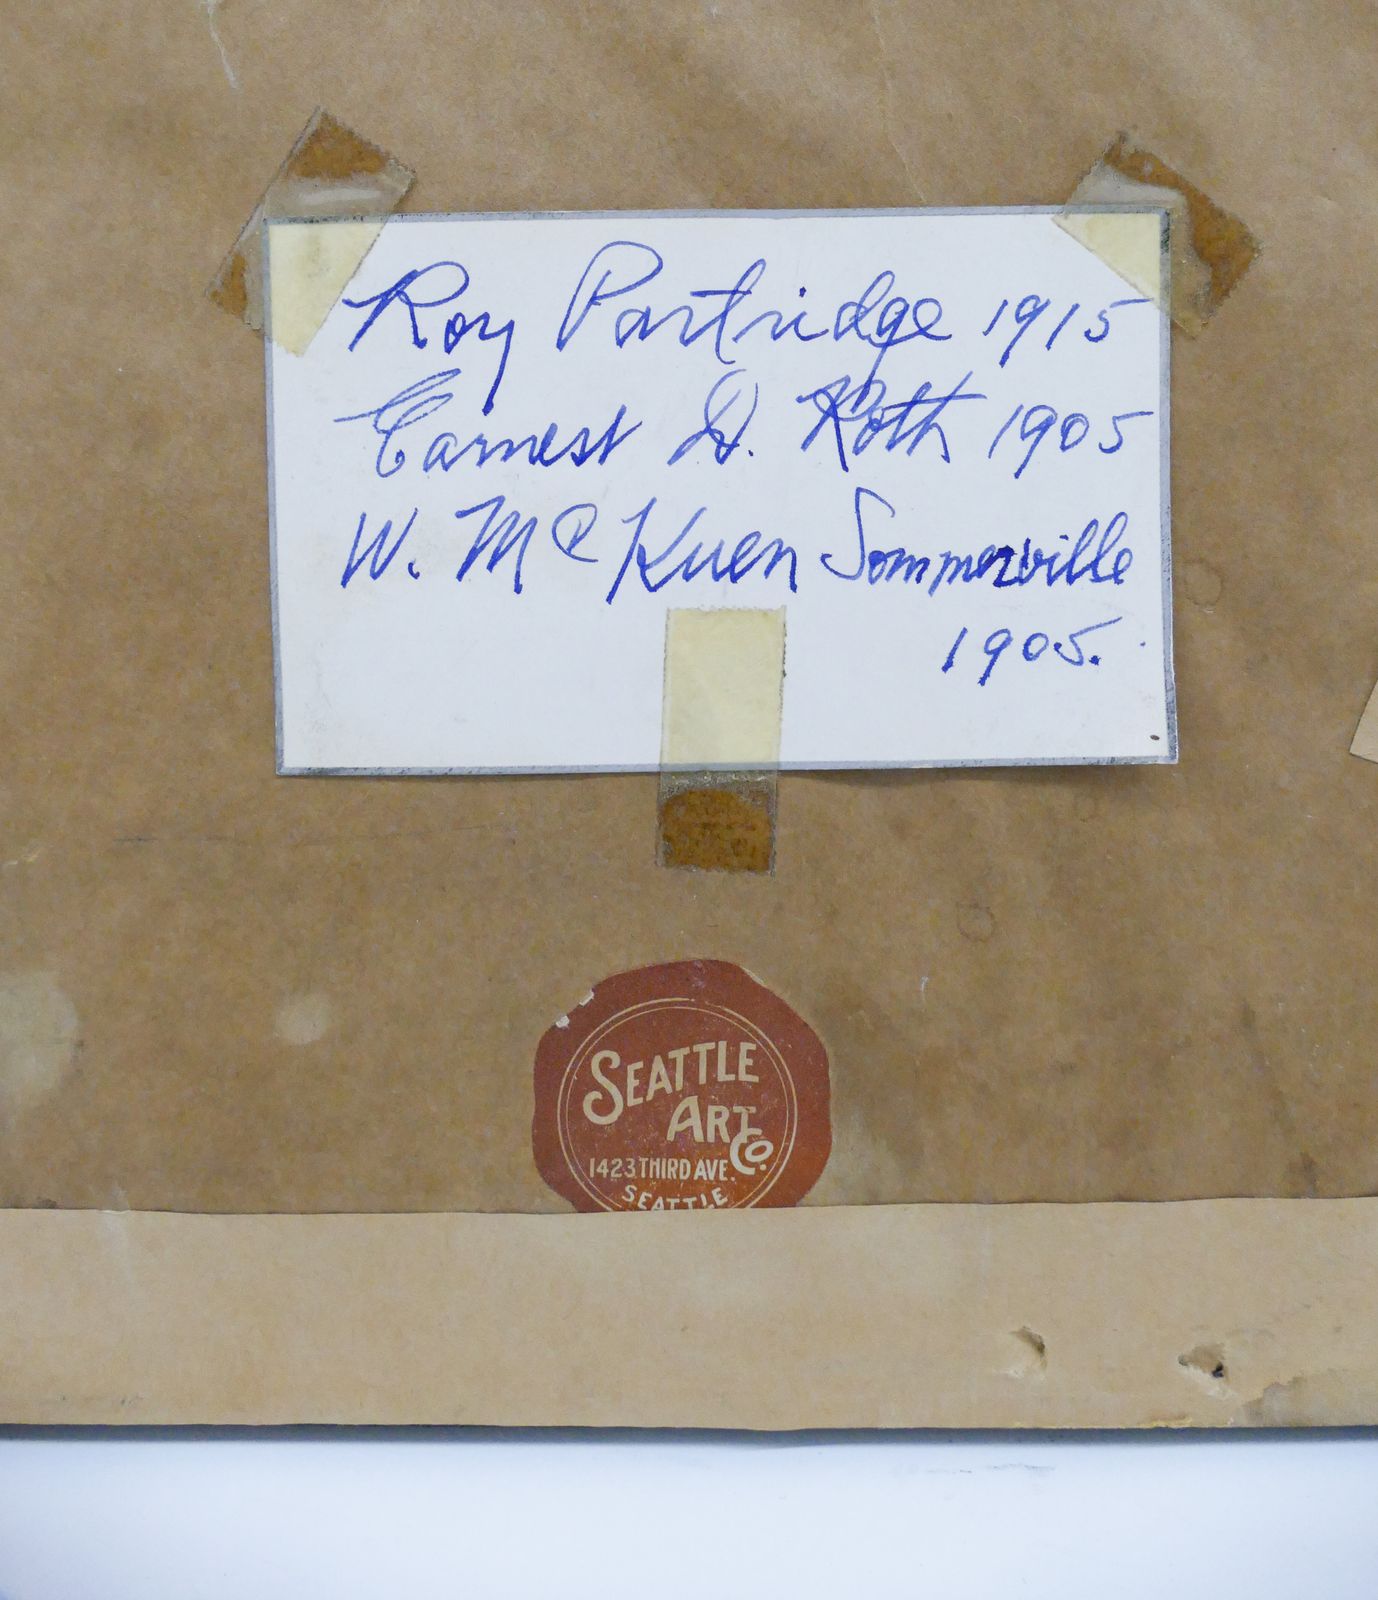 Roy Partridge 1915
Earnest D. Roth 1905
W. Mc Kuen Sommerville
1905.
SEATTLE
ART Co.
1423 THIRD AVE.
SEATTLE